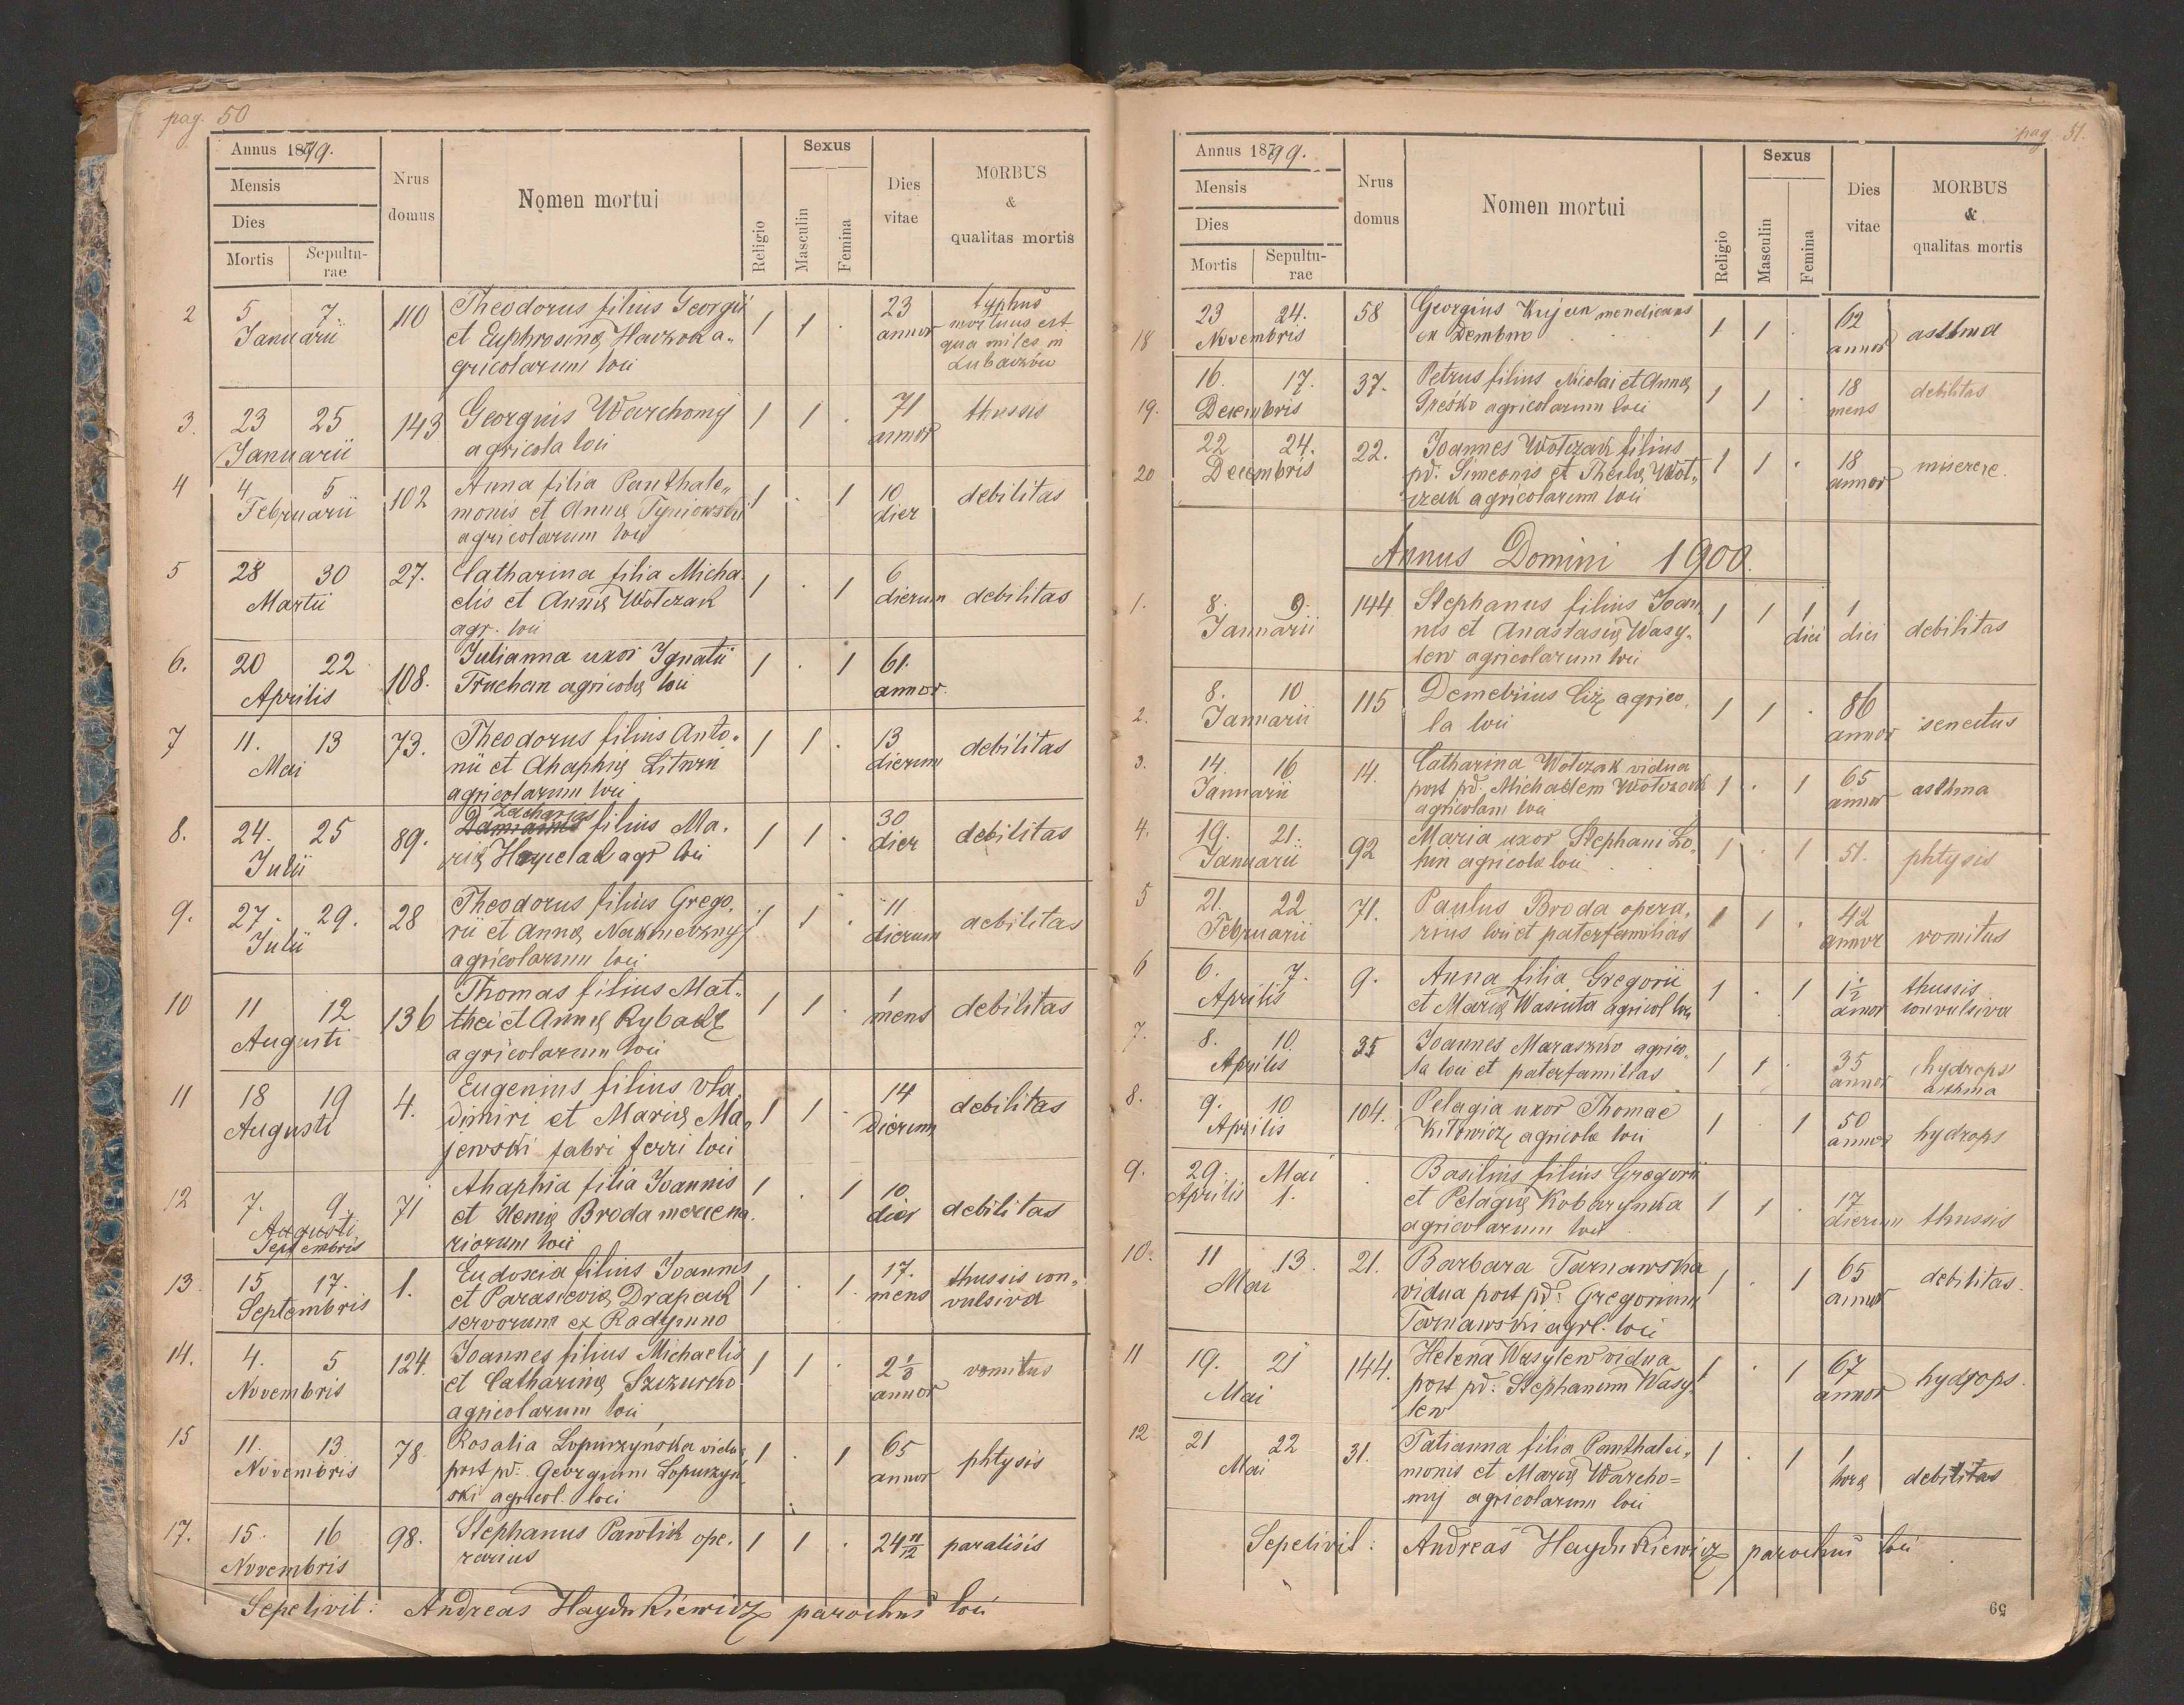 pag. 50
Annus 1899.
Mensis
Dies
Mortis Sepultu-
rae
Nrus
domus
Nomen mortui
Religio
Sexus
Masculin
Femina
Dies
vitae
MORBUS
&
qualitas mortis
2 5 7. 110 Theodorus filius Georgii 1 1 . 23 typhus
Januarii et Euphrosinę Haczok a- annor mortuus est
gricolarum loci qua miles in
Lubaczów
3. 23 25 143 Georgius Warchomij 1 1 . 71 thussis
Januarii agricola loci annor
4 4 5 102 Anna filia Panthale- 1 . 1 10 debilitas
Februarii monis et Annę Tyniowski dier
agricolarum loci
5 28 30 27. Catharina filia Micha- 1 . 1 6
Martii elis et Annę Wołczak dierum debilitas
agr. loci
6. 20 22 108. Julianna uxor Ignatii 1 . 1 61.
Aprilis Truchan agricolę loci annor.
7 11. 13 73. Theodorus filius Anto- 1 1 . 13 debilitas
Mai nii et Ahaphię Litwin dierum
agricolarum loci
Zacharias
8. 24. 25 89. Damianus filius Ma- 1 1 . 30 debilitas
Julii rię agr loci dier
9. 27. 29. 28 Theodorus filius Grego- 1 1 . 11 debilitas
Julii rii et Annę dierum
agricolarum loci
10 11 12 136 Thomas filius Mat- 1 1 . 1 debilitas
Augusti thei et Annę Rybak mens
agricolarum loci
11 18 19 4. Eugenius filius Vla- 1 1 . 14 debilitas
Augusti dimiri et Marię Ma- Dierum
jewski fabri ferri loci
12 7. 9. 71 Ahaphia filia Joannis 1 . 1 10 debilitas
Augusti et Broda mercena- dier
Septembris riorum loci
13. 15 17. 1. Eudoxia filius Joannis 1 . 1. 17. thussis con-
Septembris et Parascevię Drapach mens vulsiva
servorum ex Radymno
14. 4. 5 124. Joannes filius Michaelis 1 1 . 2 vomitus
Novembris et Catharinę Szczurko annor
agricolarum loci
15 11. 13 78. Rosalia Łopuszyńska vidua 1 . 1 65 phtysis
Novembris post pd: Georgium Łopuszyń- annor
ski agricol. loci
17. 15. 16 98. Stephanus Pawlik ope- 1 1 . 24 11/12 paralisis
Novembris rarius
Sepelivit: Andreas Haydukiewicz parochus loci
pag 51.
Annus 1899.
Mensis
Dies
Mortis Sepultu-
rae
Nrus
domus
Nomen mortui
Religio
Sexus
Masculin
Femina
Dies
vitae
MORBUS
&
qualitas mortis
18 23 24. 58 Georgius Kujan mendicans 1 1 . 62 asthma
Novembris ex Dembno annor
19. 16. 17. 37. Petrus filius Nicolai et Annę 1 1 . 18 debilitas
Decembris Greśko agricolarum loci mens
20 22 24. 22. Joannes Wołczak filius 1 1 . 18 miserere.
Decembris pd. Simeonis et Theclę Woł- annor
czak agricolarum loci
Annus Domini 1900.
1. 8. 9. 144 Stephanus filius Joan- 1 1 1 1 debilitas
Januarii nis et Anastasię Wasy- diei diei
lew agricolarum loci
2. 8. 10 115 Demetrius Ciż agrico- 1 1 . 86 senectus
Januarii la loci annor
3. 14. 16 14. Catharina Wołczak vidua 1 . 1 65 asthma
Januarii post pd. Michaelem Wołczak annor
agricolam loci
4. 19. 21. 92 Maria uxor Stephani Ło- 1 . 1 51. phtysis
Januarii agricolę loci
5 21. 22 71. Paulus Broda opera- 1 1 . 42 vomitus
Februarii rius loci et paterfamilias annor
6 6. 7. 9. Anna filia Gregorii 1 . 1 1½ thussis
Aprilis et Marię Wasiuta agricol loci annor convulsiva
7. 8. 10 35 Joannes Maraszko agrico- 1 1 . 35 hydrops
Aprilis la loci et paterfamilias annor asthma
8. 9. 10 104. Pelagia uxor Thomae 1 . 1 50 hydrops
Aprilis Kitowicz agricolę loci annor
9. 29. Mai . Basilius filius Gregorii 1 1 . 17 thussis
Aprilis 1. et Pelagię Kobarynka dierum
agricolarum loci
10. 11 13. 21. Barbara Tarnawska 1 . 1 65 debilitas.
Mai vidua post pd: Gregorium annor
Tarnawski agrl. loci
11 19. 21 144. Helena Wasylew vidua 1 . 1 67 hydrops.
Mai post pd: Stephanum Wasy- annor
lew
12 21 22 31. Tatianna filia Panthalei- 1 . 1 1 debilitas
Mai monis et Marię Warcho- horę
mij agricolarum loci
Sepelivit: Andreas Haydukiewicz parochus loci
59